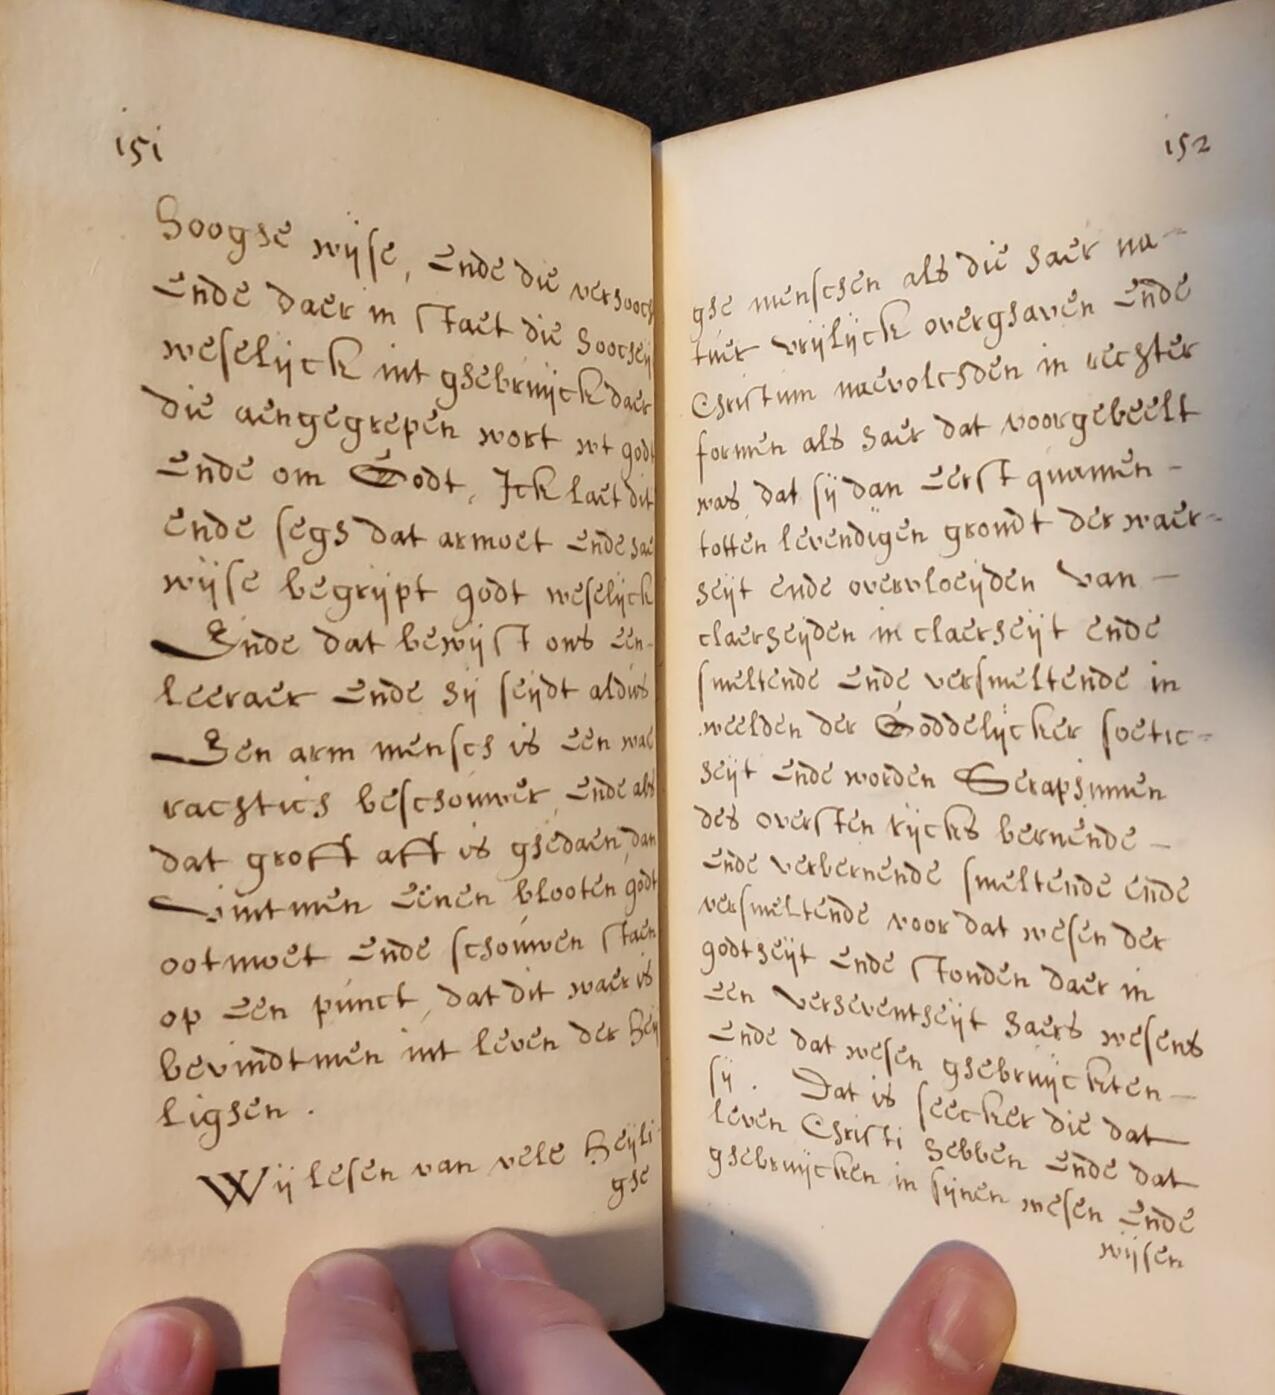 151
hooghe wijse, ende die verhooch
ende daer in staet die hoochey
weselijck int ghebruijck daer
die aengegrepen wort wt godt
ende om Godt, Ick laet dit
ende segh dat armoet ende hae
wijse begrijpt godt weselijck
Ende dat bewijst ons een-
leeraer ende hij seijdt aldus
Een arm mensch is een wae
rachtich beschouwer, ende als
dat groff aff is ghedaen, dan
vintmen eenen blooten godt
ootmoet ende schouwen staen
op een punct, dat dit waer is
bevindtmen int leven der heij
lighen.
Wij lesen van vele heijli
ghe
152
ghe menschen als die haer na-
tuer vrijlijck overghaven ende
Christum naevolchden in rechter
formen als haer dat voorgebeelt
was, dat sij dan eerst quamen -
totten levendigen grondt der waer-
heijt ende overvloeijden van -
claerheijden in claerheijt ende
smeltende ende versmeltende in
weelden der Goddelijcker soetic-
heijt ende worden Seraphinnen
des oversten rijcks bernende -
ende verbernende smeltende ende
versmeltende voor dat wesen der
godtheijt ende stonden daer in
een verheventheijt haers wesens
ende dat wesen ghebruijckten -
sij. Dat is seecker die dat
leven Christi hebben ende dat
ghebruijcken in sijnen wesen ende
wijsen